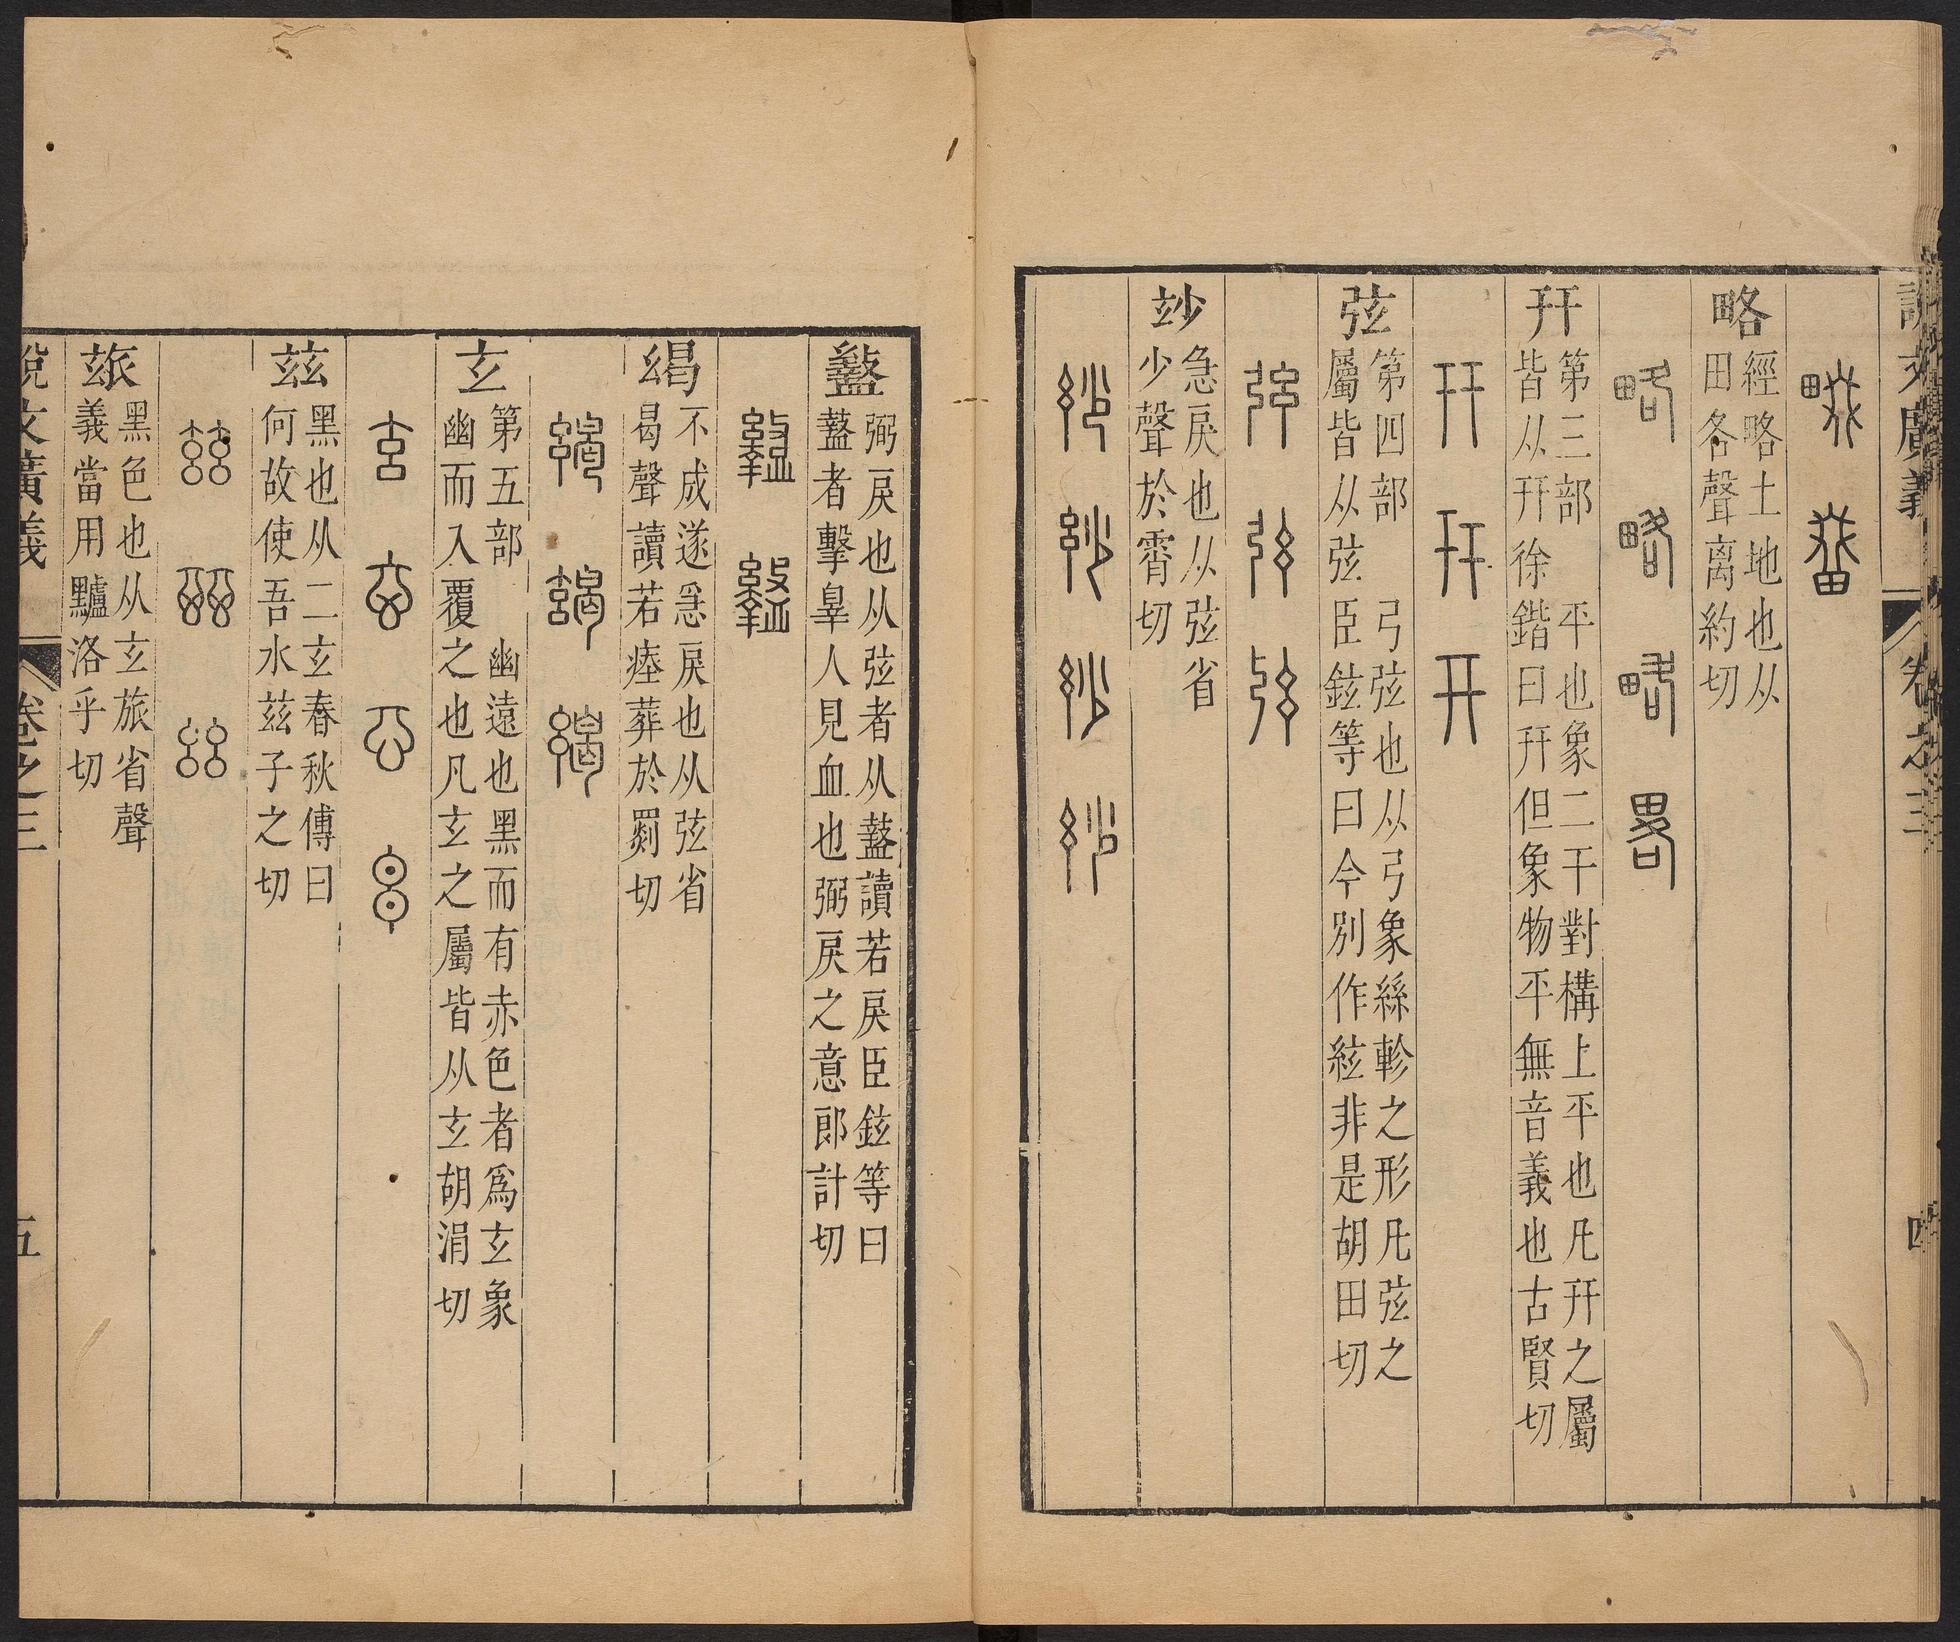 略
經略土地也从
田各聲离約切
幵
第三部　平也象二干對構上平也凡幵之屬
皆从幵徐鍇曰幵但象物平無音義也古賢切
弦
第四部　弓弦也从弓象絲軫之形凡弦之
屬皆从弦臣鉉等曰今別作絃非是胡田切
玅
急戾也从弦省
少聲於霄切
盭
弼戾也从弦者从盩讀若戾臣鉉等曰
盩者擊辠人見血也弼戾之意郎計切
不成遂急戾也从弦省
曷聲讀若瘞葬於罽切
玄
第五部　幽遠也黑而有赤色者爲玄象
幽而入覆之也凡玄之屬皆从玄胡涓切
玆
黑也从二玄春秋傳曰
何故使吾水玆子之切
玈
黑色也从玄旅省聲
義當用黸洛乎切
說文廣義
卷之三
五